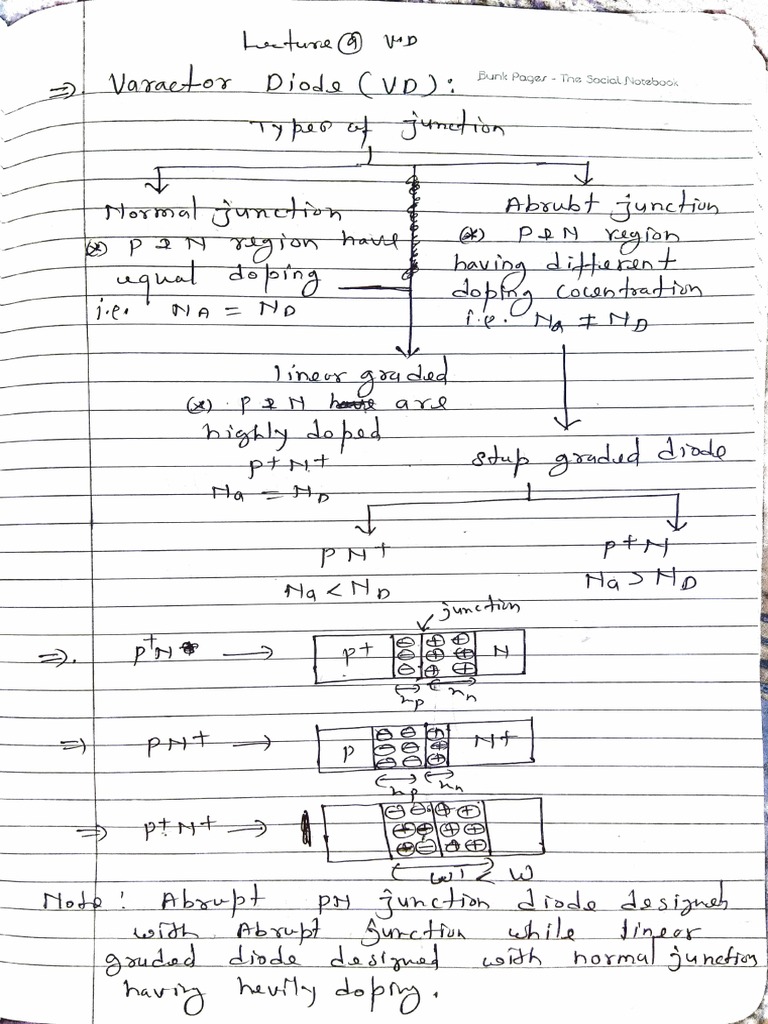 Lecture ⑨ VD
⇒ Varactor Diode (VD):
Bunk Pages - The Social Notebook
Types of junction
Normal junction
(*) P & N region have
equal doping
i.e. NA = ND
Abrubt junction
(*) P & N region
having different
doping cocentration
i.e. Na ≠ ND
linear graded
(*) P & N are
highly doped
P+N+
Na = ND
step graded diode
PN+
Na < ND
P+N
Na > ND
junction
⇒. P+N → P+ ⊖ ⊕ ⊕ N
⊖ ⊕ ⊕
⊖ ⊕ ⊕
xp xn
⇒ PN+ → P ⊖ ⊖ ⊕ N+
⊖ ⊖ ⊕
⊖ ⊖ ⊕
xp xn
⇒ P+N+ → ⊖ ⊖ ⊕ ⊕
⊕ ⊕
⊖ ⊕ ⊕
W' < W
Note: Abrupt PN junction diode designed
with Abrupt junction while linear
graded diode designed with normal junction
having hevily doping.